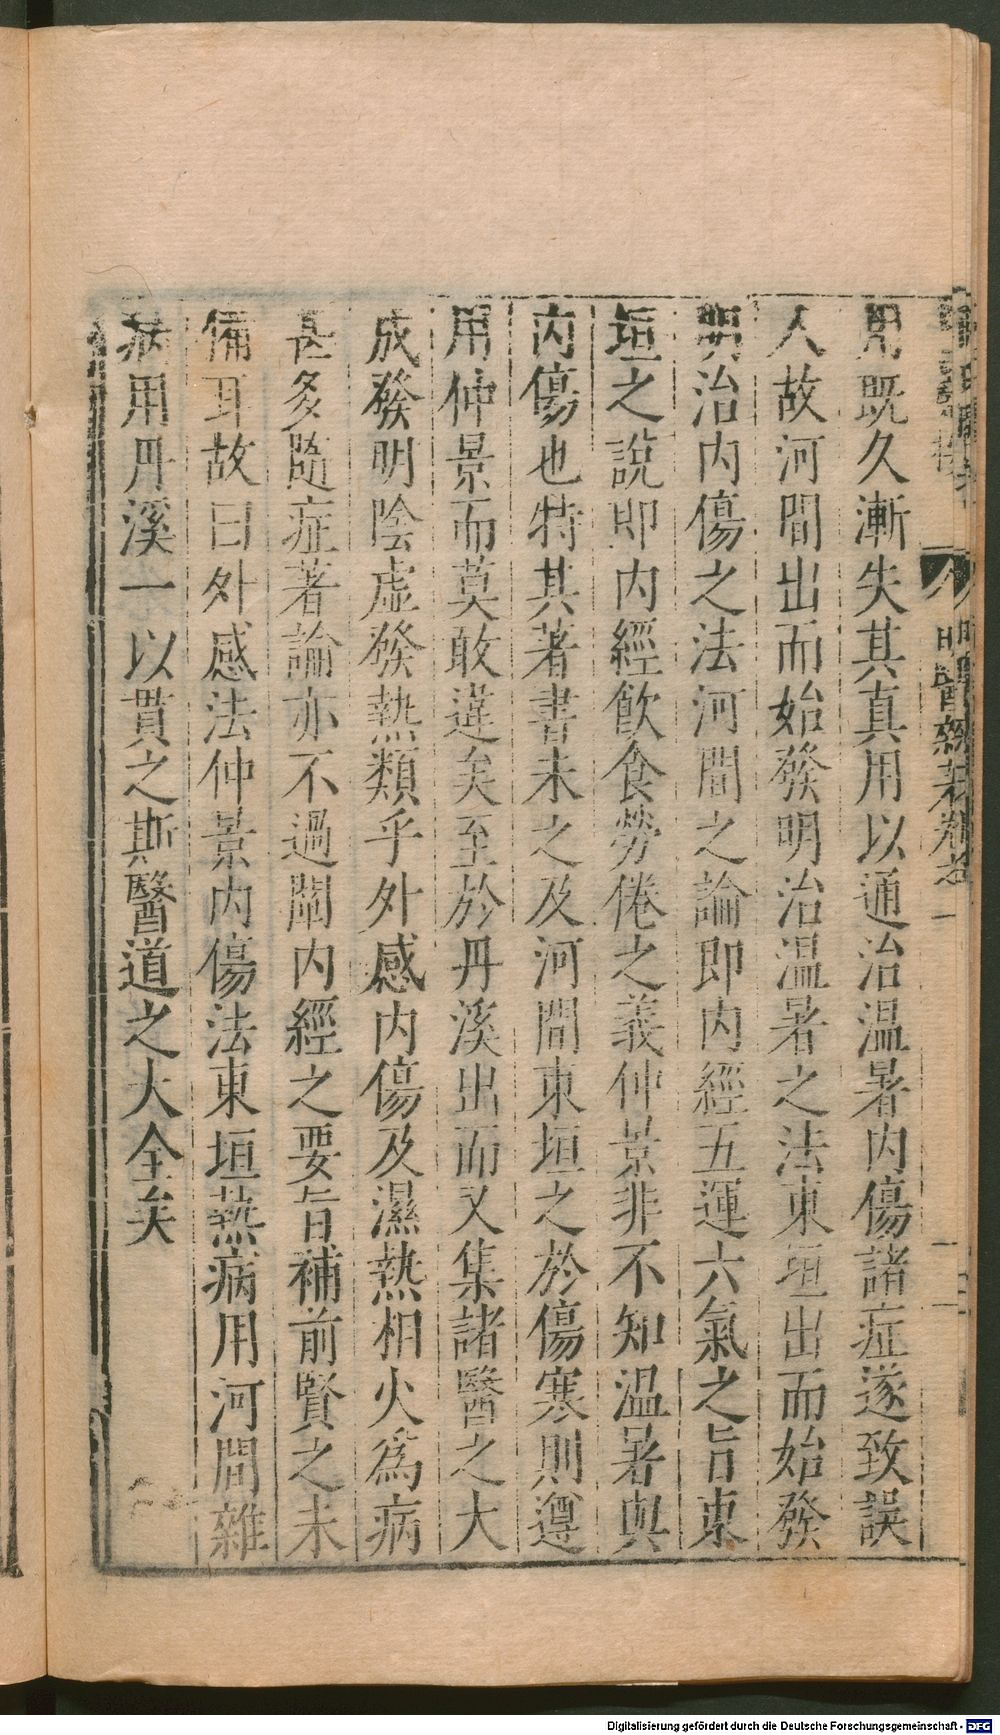 用既久漸失其真用以通治温暑内傷諸症遂致誤
人故河間出而始發明治温暑之法東垣出而始發
明治内傷之法河間之論即内經五運六氣之旨東
垣之說即内經飲食勞倦之義仲景非不知温暑與
内傷也特其著書未之及河間東垣之於傷寒則遵
用仲景而莫敢違矣至於丹溪出而又集諸醫之大
成發明陰虛發熱類乎外感内傷及濕熱相火為病
甚多隨症著論亦不過闡内經之要旨補前賢之未
備耳故曰外感法仲景内傷法東垣熱病用河間雜
病用丹溪一以貫之斯醫道之大全矣
Digitalisierung gefördert durch die Deutsche Forschungsgemeinschaft - DFG